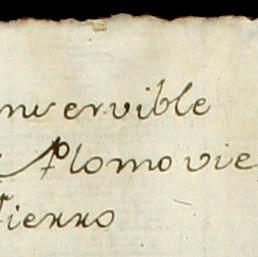 ynservible
Plomo vie
Fierro